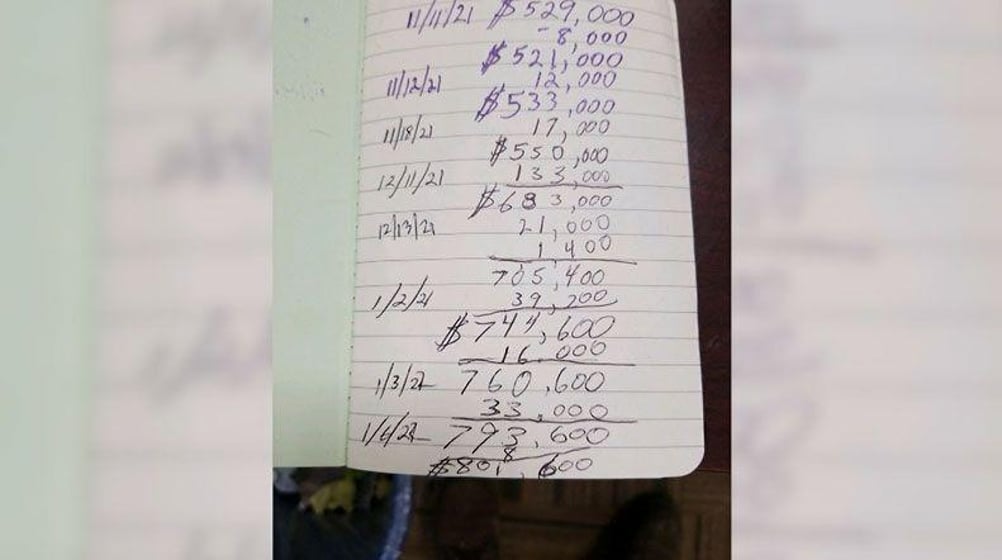 11/11/21 $529,000
-8,000
$521,000
11/12/21 12,000
$533,000
11/18/21 17,000
$550,000
12/11/21 133,000
$683,000
12/13/21 21,000
1,400
705,400
1/2/21 39,200
$744,600
16.000
1/3/22 760,600
33,000
1/6/22 793,600
8
$801,600